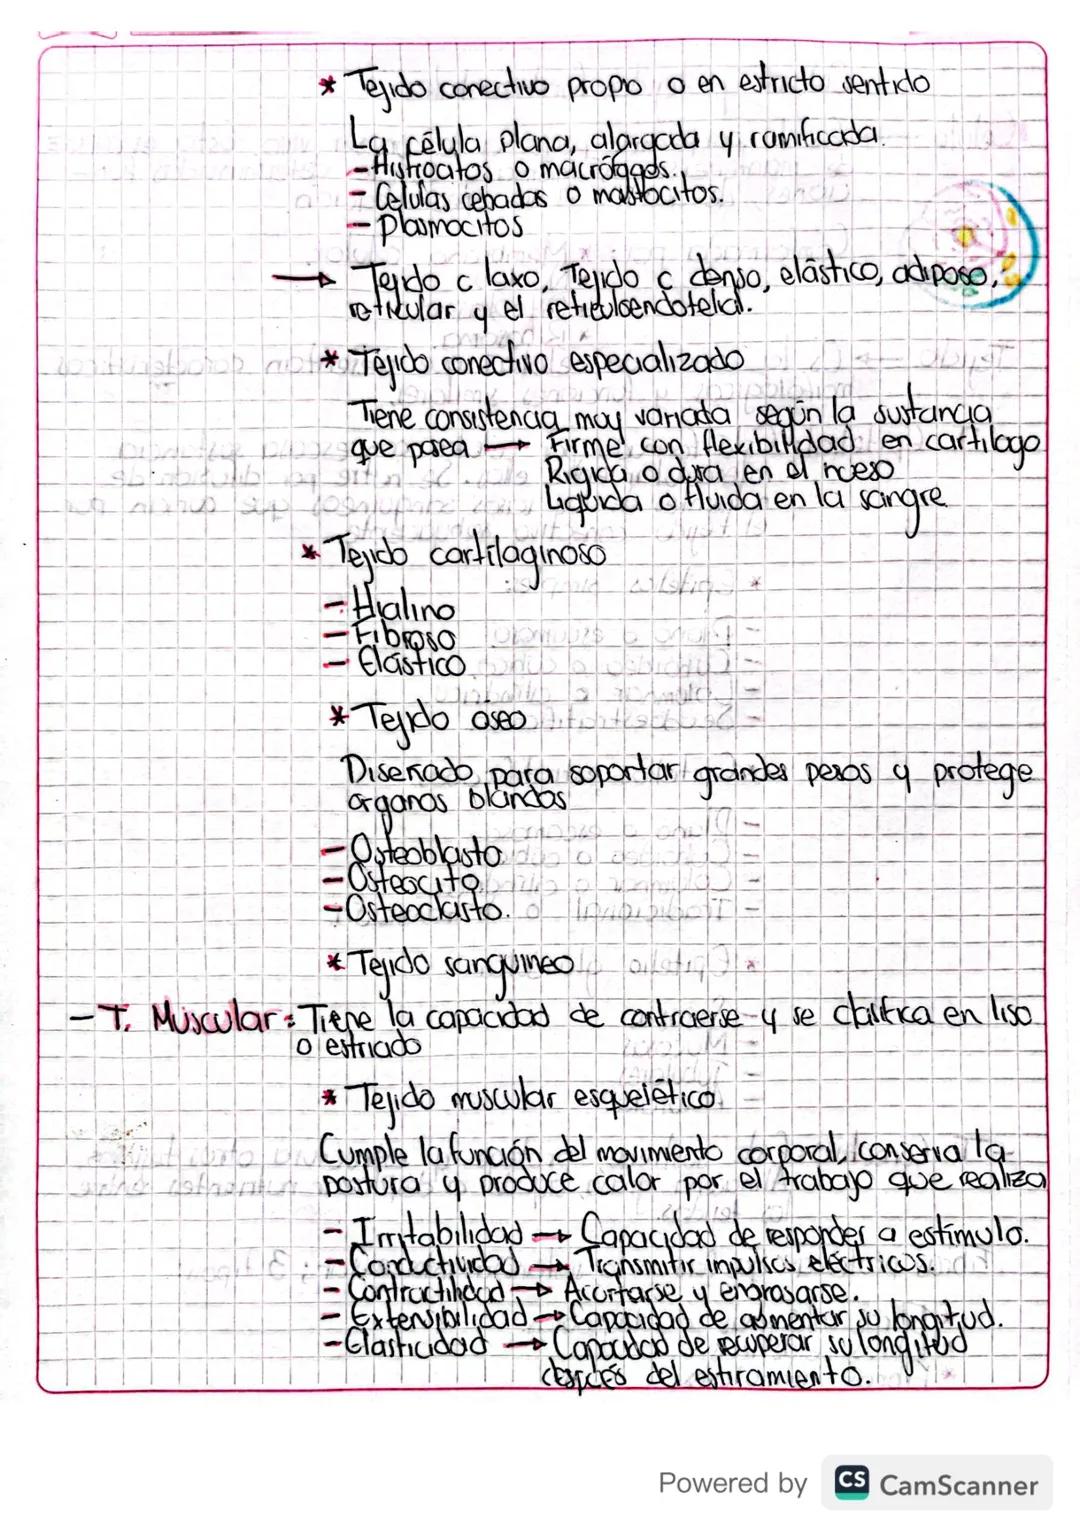 * Tejido conectivo propio o en estricto sentido
La célula plana, alargada y ramificada.
- Histiocitos o macrófagos.
- Células cebadas o mastocitos.
- Plasmocitos
→ Tejido c laxo, Tejido c denso, elástico, adiposo,
reticular y el reticuloendotelial.
* Tejido conectivo especializado
Tiene consistencia muy variada según la sustancia
que posea → Firme con flexibilidad en cartílago
Rígida o dura en el hueso
Liquida o fluida en la sangre
* Tejido cartilaginoso
- Hialino
- Fibroso
- Elástico
* Tejido óseo
Diseñado para soportar grandes pesos y protege
organos blandos
- Osteoblasto
- Osteocito
- Osteoclasto.
* Tejido sanguíneo
- T. Muscular: Tiene la capacidad de contraerse y se clasifica en liso
o estriado
* Tejido muscular esquelético
Cumple la función del movimiento corporal, conserva la
postura y produce calor por el trabajo que realiza
- Irritabilidad → Capacidad de responder a estímulo.
- Conductividad → Transmitir impulsos eléctricos.
- Contractilidad → Acortarse y engrosarse.
- Extensibilidad → Capacidad de aumentar su longitud.
- Elasticidad → Capacidad de recuperar su longitud
después del estiramiento.
Powered by CS CamScanner